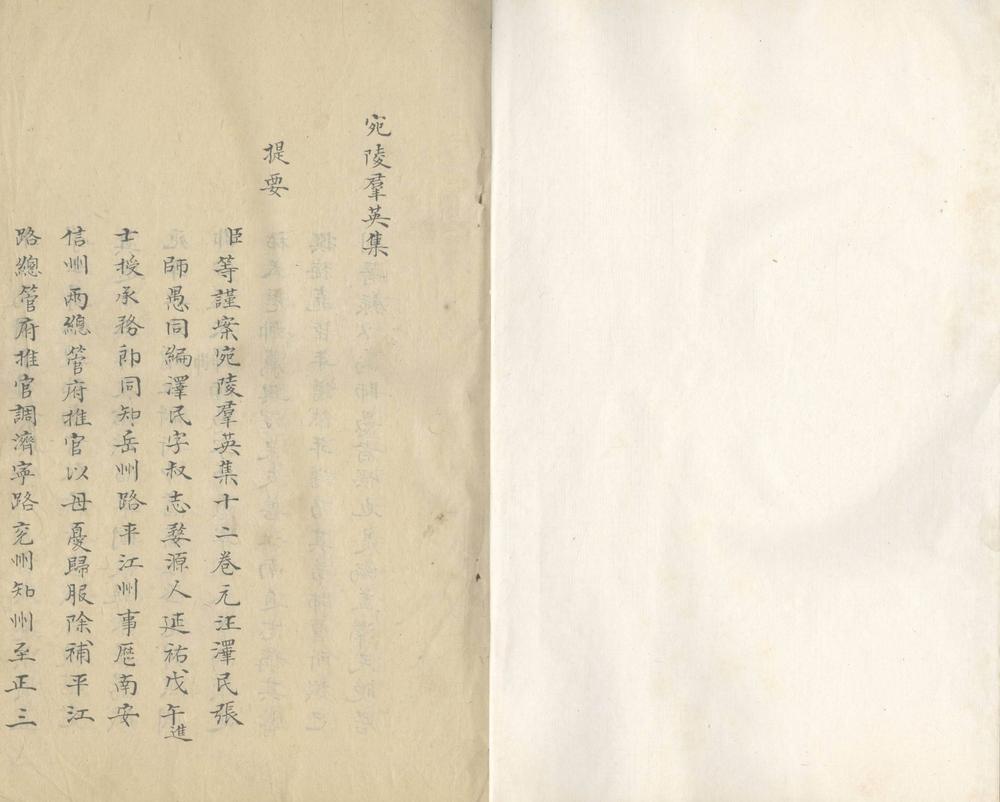 宛陵羣英集
提要
臣等謹案宛陵羣英集十二巻元汪澤民張
師愚同編澤民字叔志婺源人延祐戊午進
士授承務郎同知岳州路平江州事歴南安
信州兩總管府推官以母憂歸服除補平江
路總管府推官調濟寧路兗州知州至正三